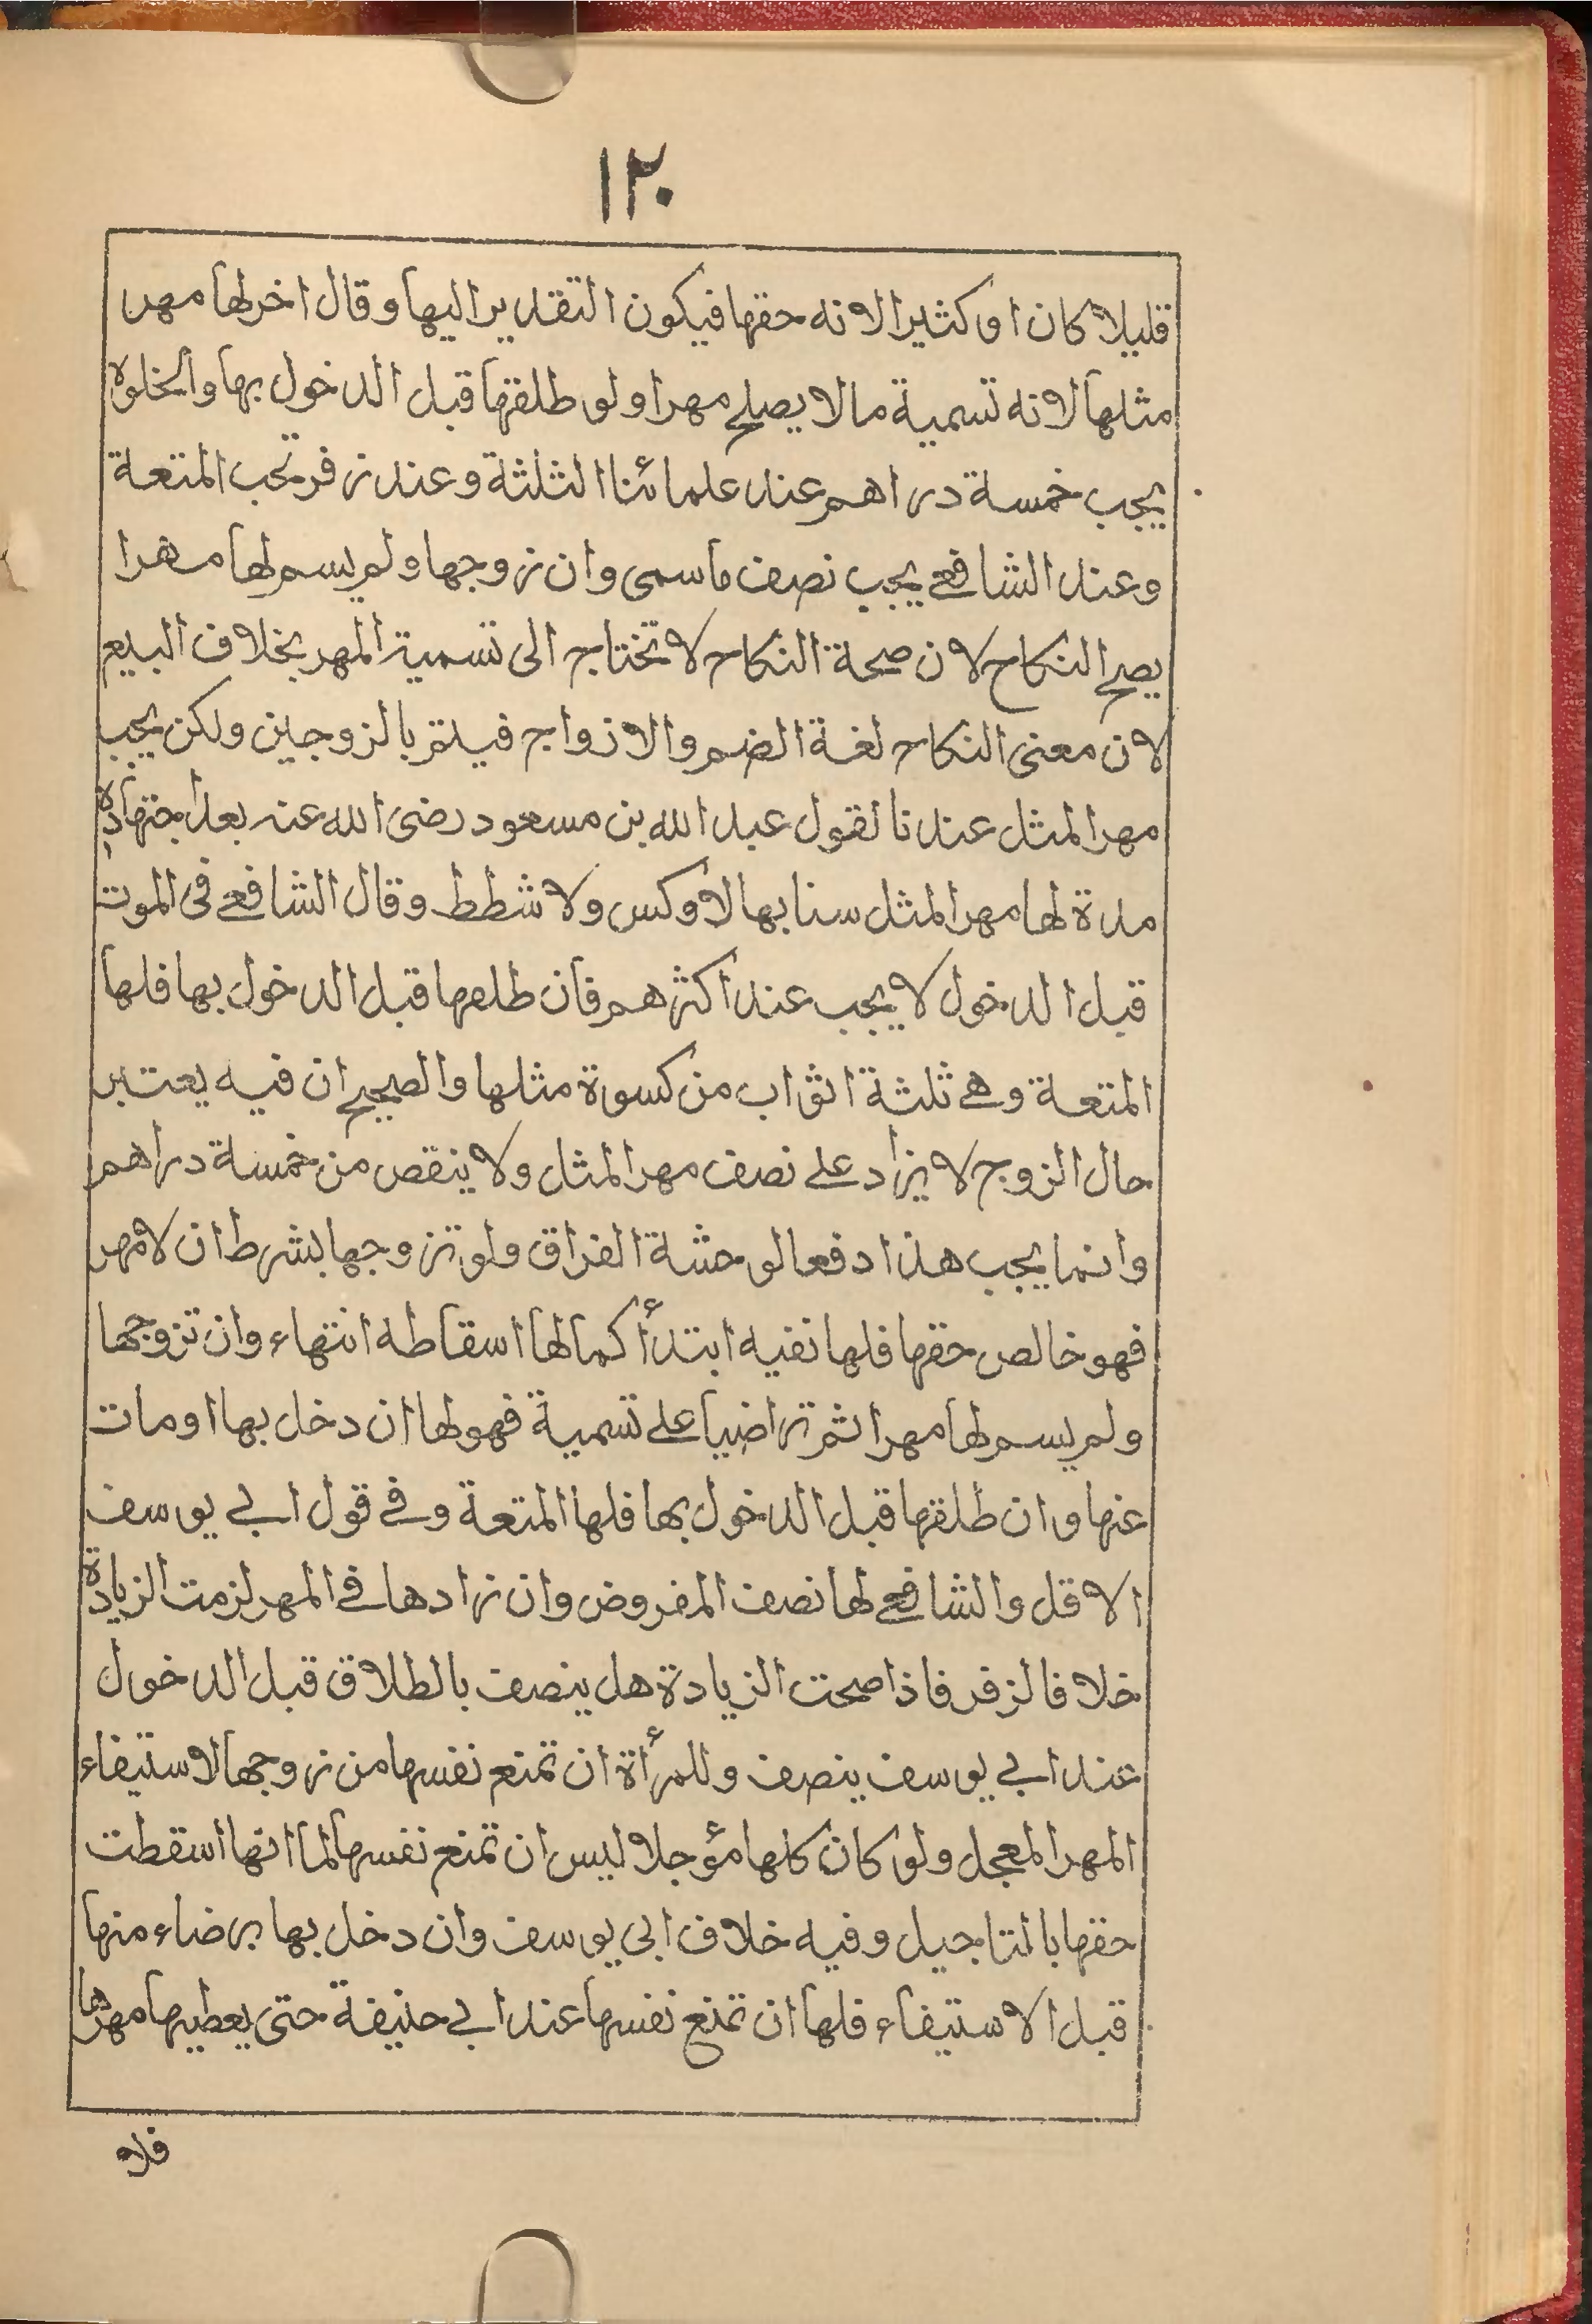 ١٢٠
قليلا كان او كثيرا لانه حقها فيكون التقدير اليها وقال اخر لها مهر
مثلها لانه تسمية مالا يصلح مهرا ولو طلقها قبل الدخول بها والخلوة
يجب خمسة دراهم عند علمائنا الثلثة وعند زفر تجب المتعة
وعند الشافعي يجب نصف ما سمى وان زوجها ولم يسم لها مهرا
يصح النكاح لان صحة النكاح لا تحتاج الى تسمية المهر بخلاف البيع
لان معنى النكاح لغة الضم والازواج فيتم بالزوجين ولكن يجب
مهر المثل عندنا لقول عبد الله بن مسعود رضى الله عنه بعد اجتهاده
مدة لها مهر المثل سنا بها لا وكس ولا شطط وقال الشافعي فى الموت
قبل الدخول لا يجب عند اكثرهم فان طلقها قبل الدخول بها فلها
المتعة وهي ثلثة اثواب من كسورة مثلها والصحيح ان فيه يعتبر
حال الزوج لا يزاد علے نصف مهر المثل ولا ينقص من خمسة دراهم
وانما يجب هذا دفعا لوحشة الفراق ولو تزوجها بشرط ان لا مهر
فهو خالص حقها فلها نفيه ابتدأ كما لها اسقاطه انتهاء وان تزوجها
ولم يسم لها مهرا ثم تراضيا علے تسمية فهو لها ان دخل بها او مات
عنها وان طلقها قبل الدخول بها فلها المتعة وفے قول ابے يوسف
الاقل والشافعے لها نصف المفروض وان زادها فے المهر لزمت الزيادة
خلافا لزفر فاذا صحت الزيادة هل ينصف بالطلاق قبل الدخول
عند ابے يوسف ينصف وللمرأة ان تمنع نفسها من زوجها لاستيفاء
المهر المعجل ولو كان كلها مؤجلا ليس ان تمنع نفسها لما انها اسقطت
حقها بالتاجيل وفيه خلاف ابى يوسف وان دخل بها برضاء منها
قبل الاستيفاء فلها ان تمنع نفسها عند ابے حنيفة حتى يعطيها مهرها
فلا